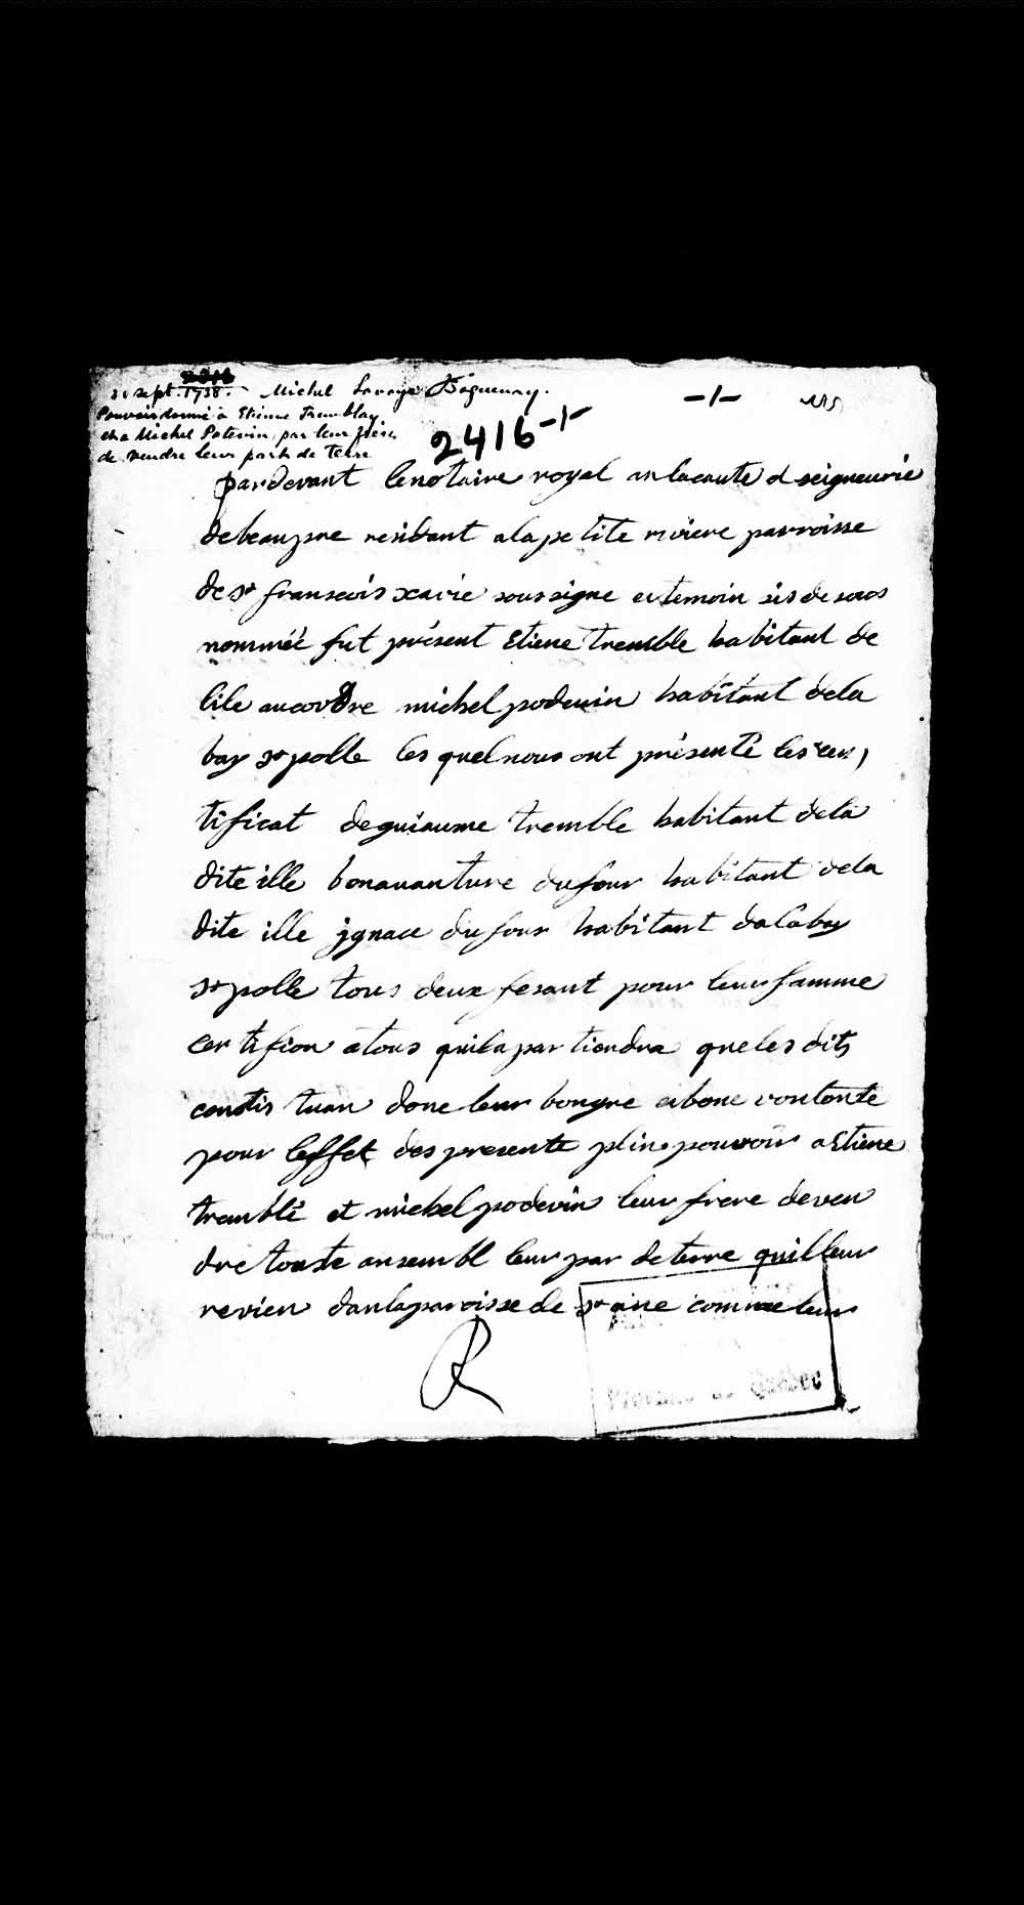 sept. 1758. Michel Lavoye Baguenay.
Pouvoir donné à Etienne Tremblay
et a Michel Potevin par leur frère
de vendre leur part de terre
2416 -/-
-/-
pardevant lenotaire royal an lacaute d seigneurie
debeaupre residant alapetite riviere parroisse
de st franseois xavie soussigne et temoin sis desous
nommée fut présent Etiene tremble habitant de
lile aucoudre michel podevin habitant dela
bay st polle les quel nous ont présenté les cer,
tificat deguiaume tremble habitant dela
dite ille bonavanture dufour habitant dela
dite ille jgnace dufour habitant dalabay
st polle tous deux fesant pour leur famme
certifion atous quila par tiendra queles dits
constis tuan done leur bongre et bone vontonte
pour leffet des presente plin pouvoir a Etiene
tramblé et michel podevin leur frere deven
dre touste ansembl leur par deterre quilleur
revien danlaparoisse de st aine comme leur
Province de Québec